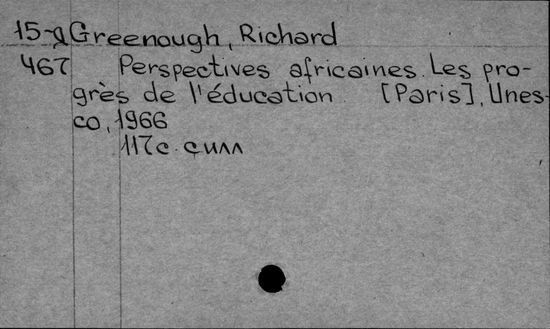 15-g Greenough, Richard
467 Perspectives africaines. Les pro-
grès de l'éducation. [Paris], Unes-
co, 1966
117с. с илл